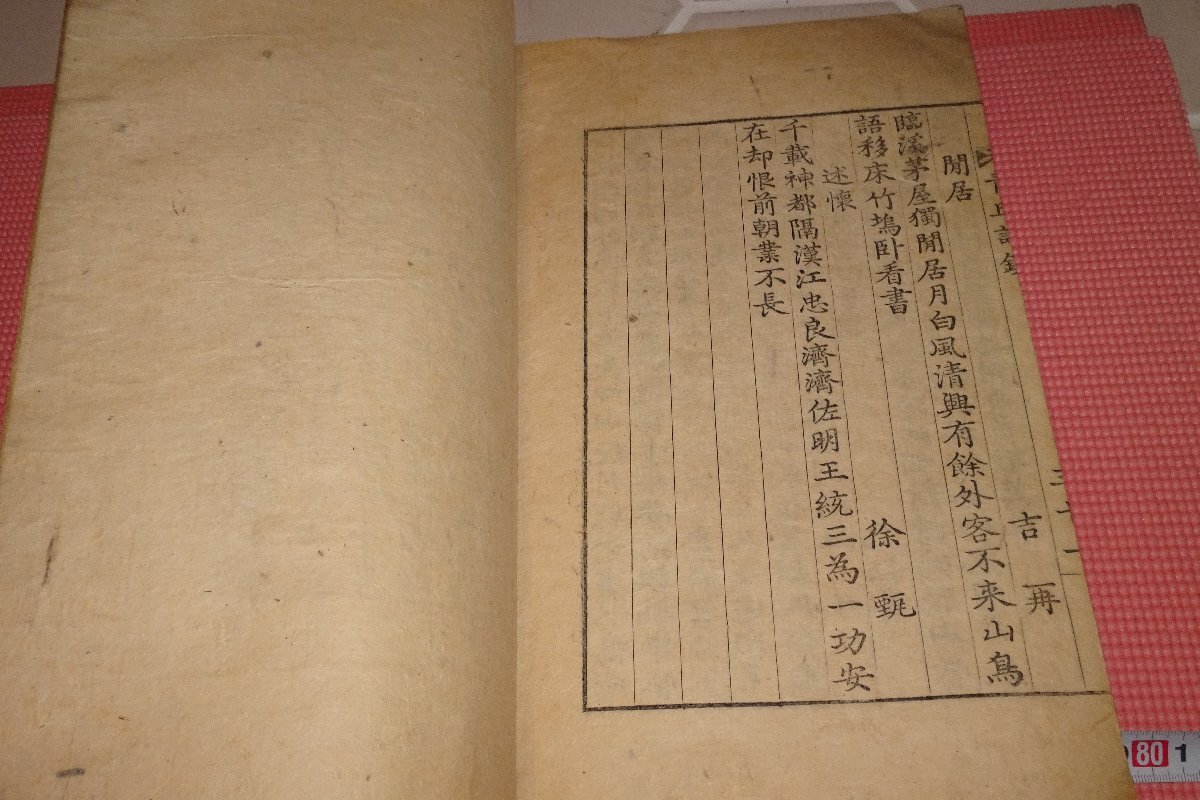 青丘詩鈔
三十一
閒居
吉再
臨溪茅屋獨閒居月白風清興有餘外客不来山鳥
語移床竹塢卧看書
徐甄
述懷
千載神都隔漢江忠良濟濟佐明王統三為一功安
在却恨前朝業不長
80 1